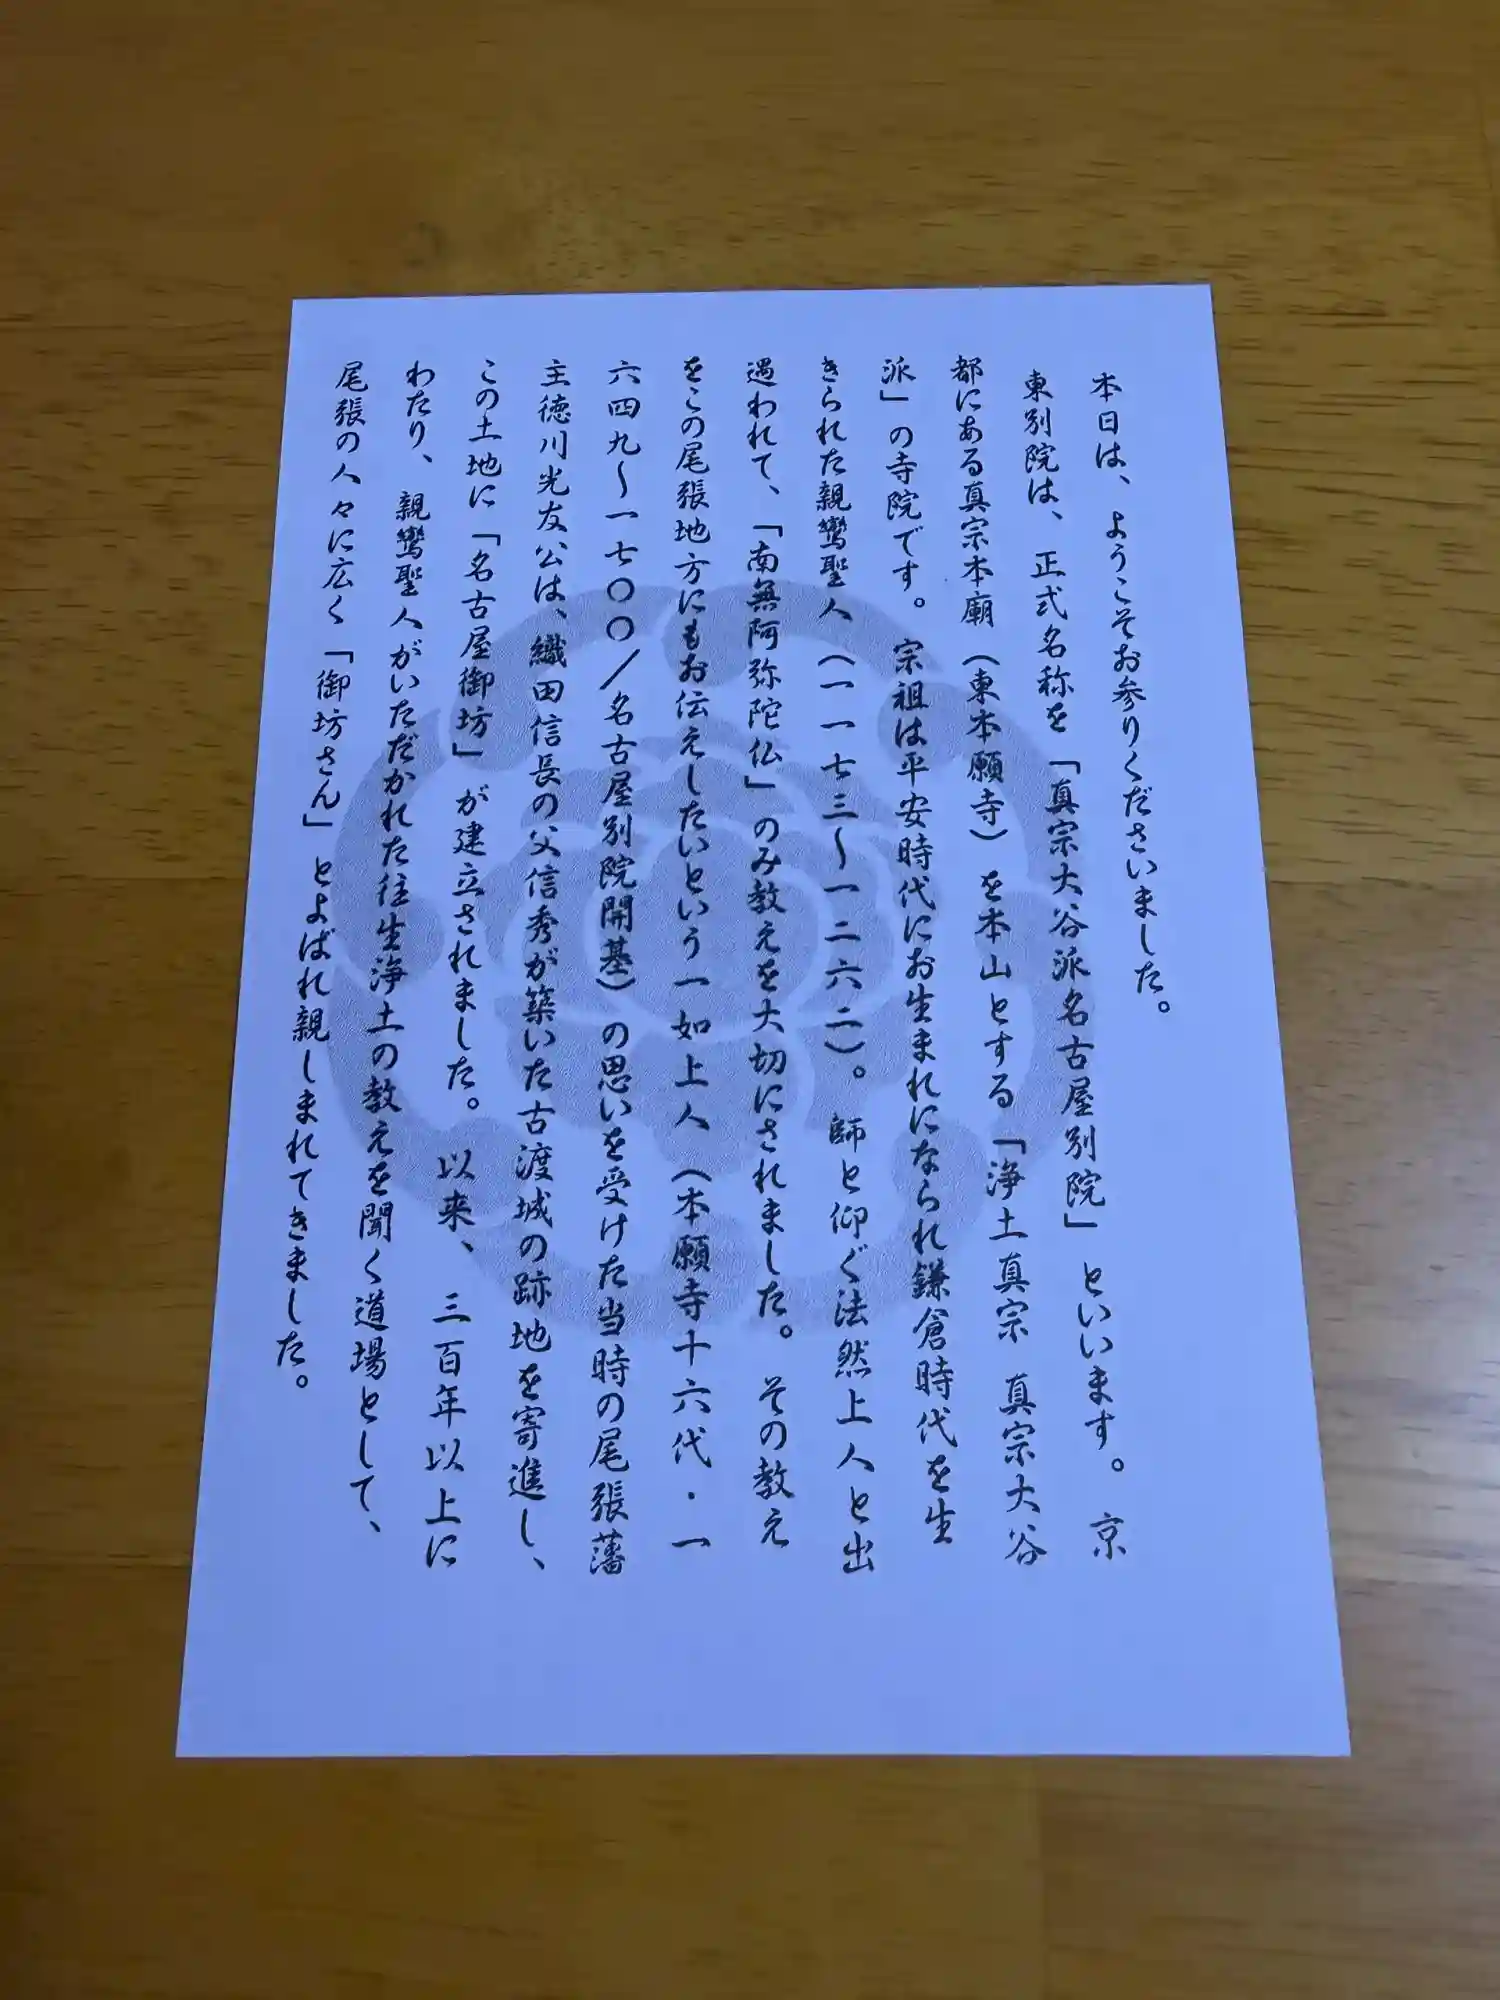 本日は、ようこそお参りくださいました。
東別院は、正式名称を「真宗大谷派名古屋別院」といいます。京
都にある真宗本廟（東本願寺）を本山とする「浄土真宗 真宗大谷
派」の寺院です。宗祖は平安時代にお生まれになられ鎌倉時代を生
きられた親鸞聖人（一一七三〜一二六二）。師と仰ぐ法然上人と出
遇われて、「南無阿弥陀仏」のみ教えを大切にされました。その教え
をこの尾張地方にもお伝えしたいという一如上人（本願寺十六代・一
六四九〜一七〇〇／名古屋別院開基）の思いを受けた当時の尾張藩
主徳川光友公は、織田信長の父信秀が築いた古渡城の跡地を寄進し、
この土地に「名古屋御坊」が建立されました。以来、三百年以上に
わたり、親鸞聖人がいただかれた往生浄土の教えを聞く道場として、
尾張の人々に広く「御坊さん」とよばれ親しまれてきました。